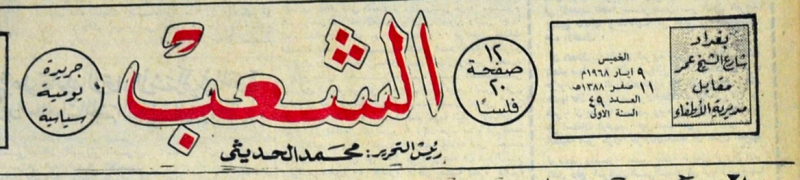 بغداد
شارع الشيخ عمر
مقابل
مديرية الأطفاء
الخميس
٩ ايار ١٩٦٨م
١١ صفر ١٣٨٨هـ
العدد ٤٩
السنة الاولى
١٢
صفحة
٢٠
فلسًا
الشعب
جريدة
يومية
سياسية
رئيس التحرير: محمد الحديثي